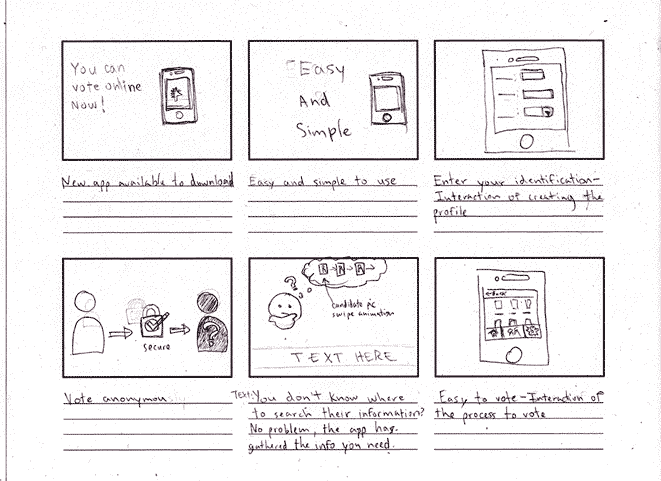 You can
vote online
Now!
Easy
And
Simple
New app available to download
Easy and simple to use
Enter your identification-
Interaction of creating the
profile
secure
?
?
?
candidate pic
swipe animation
TEXT HERE
Vote anonymou
TEXT: You don't know where
to search their information?
No problem, the app has
gathered the info you need.
Easy to vote - Interaction of
the process to vote